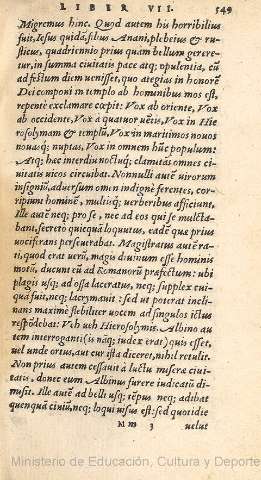 LIBER VII. 549
Migremus hinc. Quod autem his horribilius
fuit, Iesus quidã, filius Anani, plebeius & ru-
sticus, quadriennio prius quam bellum gerere-
tur, in summa ciuitatis pace atq; opulentia, cũ
ad festum diem uenisset, quo ategias in honorẽ
Dei componi in templo ab hominibus mos est,
repentè exclamare cœpit: Vox ab oriente, Vox
ab occidente, Vox à quatuor uẽtis, Vox in Hie
rosolymam & templũ, Vox in maritos nouos
nouasq́; nuptas, Vox in omnem hũc populum:
Atq; hæc interdiu noctuq́; clamitãs omnes ci-
uitatis uicos circuibat. Nonnulli autẽ uirorum
insigniũ, aduersum omen indignè ferentes, cor-
ripiunt hominẽ, multisq́; uerberibus afficiunt.
Ille autẽ neq; pro se, nec ad eos qui se mulcta-
bant, secreto quicquã loquutus, eadẽ quæ prius
uociferans perseuerabat. Magistratus autẽ ra-
ti, quod erat uerũ, magis diuinum esse hominis
motũ, ducunt eũ ad Romanorũ præfectum: ubi
plagis usq; ad ossa laceratus, neq; supplex cui-
quã fuit, neq; lacrymauit: sed ut poterat incli-
nans maximè flebiliter uocem ad singulos ictus
respõdebat: Veh ueh Hierosolymis. Albino au
tem interroganti (is nãq; iudex erat) quis esset,
uel unde ortus, aut cur ista diceret, nihil retulit.
Non prius autem cessauit à luctu miseræ ciui-
tatis, donec eum Albinus furere iudicatũ di-
misit. Ille autẽ ad belli usq; tẽpus neq; adibat
quenquã ciuiũ, neq; loqui uisus est: sed quotidie
Mm 3 uelut
Ministerio de Educación, Cultura y Deporte